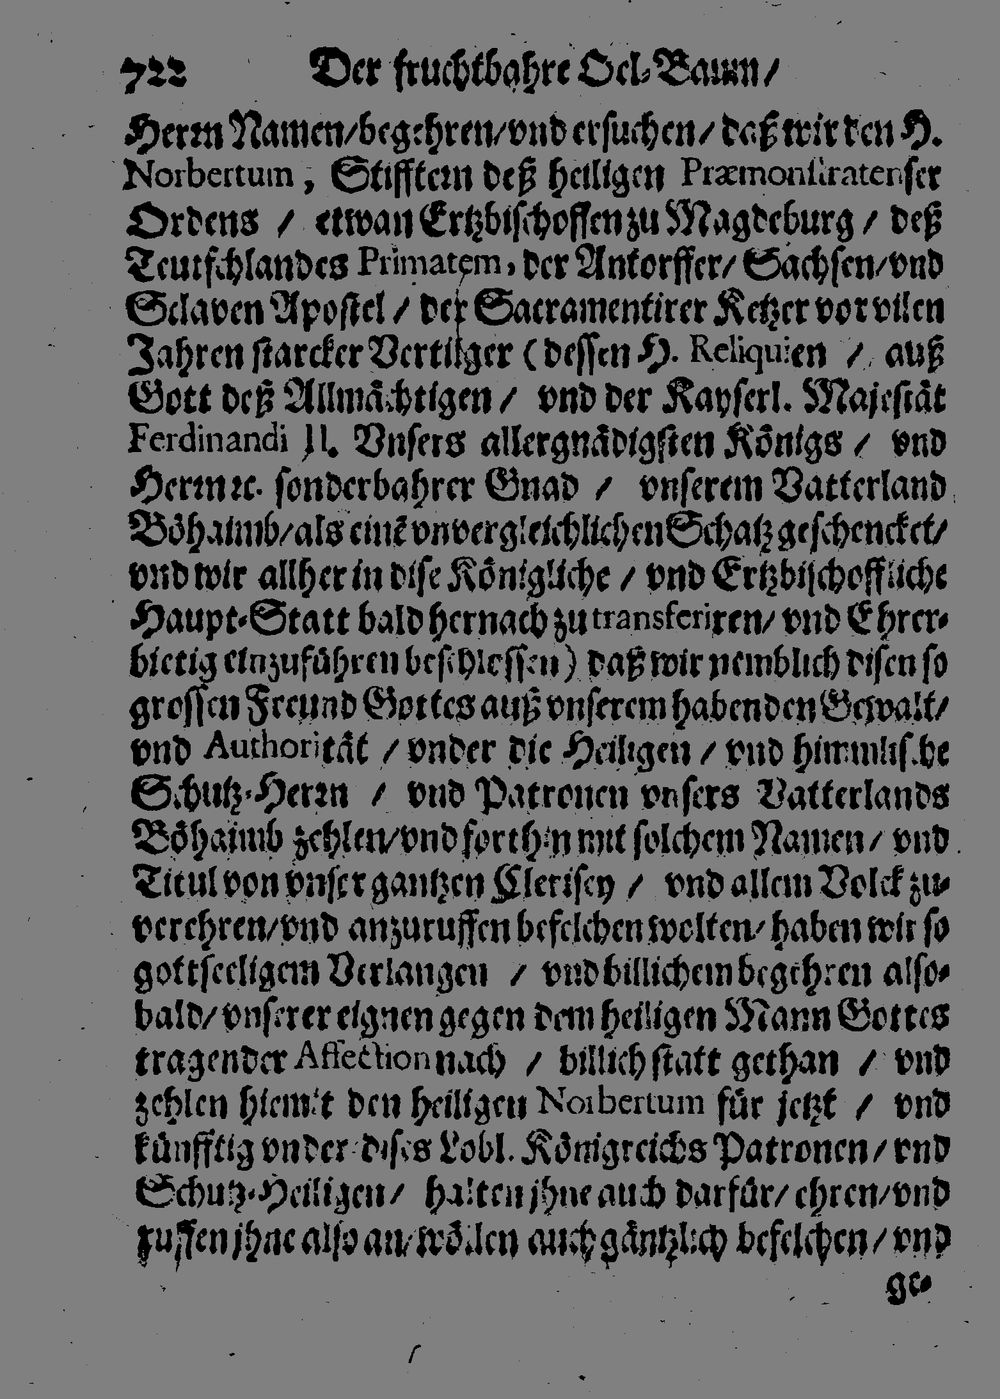 722 Der fruchtbahre Oel-Baum/
Herrn Namen/begehren/vnd ersuchen/ daß wir den H.
Norbertum, Stifftern deß heiligen Præmonstratenser
Ordens / etwan Ertzbischoffen zu Magdeburg / deß
Teutschlandes Primatem, der Antorffer/ Sachsen/vnd
Sclaven Apostel / der Sacramentirer Ketzer vor vilen
Jahren starcker Vertilger (dessen H. Reliquien / auß
Gott deß Allmächtigen / vnd der Kayserl. Majestät
Ferdinandi II. Vnsers allergnädigsten Königs / vnd
Herrn ꝛc. sonderbahrer Gnad / vnserem Vatterland
Böhaimb/als einē vnvergleichlichen Schatz geschencket/
vnd wir allher in dise Königliche / vnd Ertzbischoffliche
Haupt-Statt bald hernach zu transferiren/ vnd Ehrer-
bietig einzuführen beschlossen) daß wir nemblich disen so
grossen Freund Gottes auß vnserem habenden Gewalt/
vnd Authorität / vnder die Heiligen / vnd himmlische
Schutz-Herrn / vnd Patronen vnsers Vatterlands
Böhaimb zehlen/vnd forthin mit solchem Namen/ vnd
Titul von vnser gantzen Clerisey / vnd allem Volck zu-
verehren/vnd anzuruffen befelchen wolten/ haben wir so
gottseeligem Verlangen / vnd billichem begehren also-
bald/ vnserer eignen gegen dem heiligen Mann Gottes
tragender Affection nach / billich statt gethan / vnd
zehlen hiemit den heiligen Norbertum für jetzt / vnd
künfftig vnder dises Lobl. Königreichs Patronen/ vnd
Schutz-Heiligen/ halten jhne auch darfür/ ehren/vnd
ruffen jhne also an/wöllen auch gäntzlich befelchen/ vnd
ge-